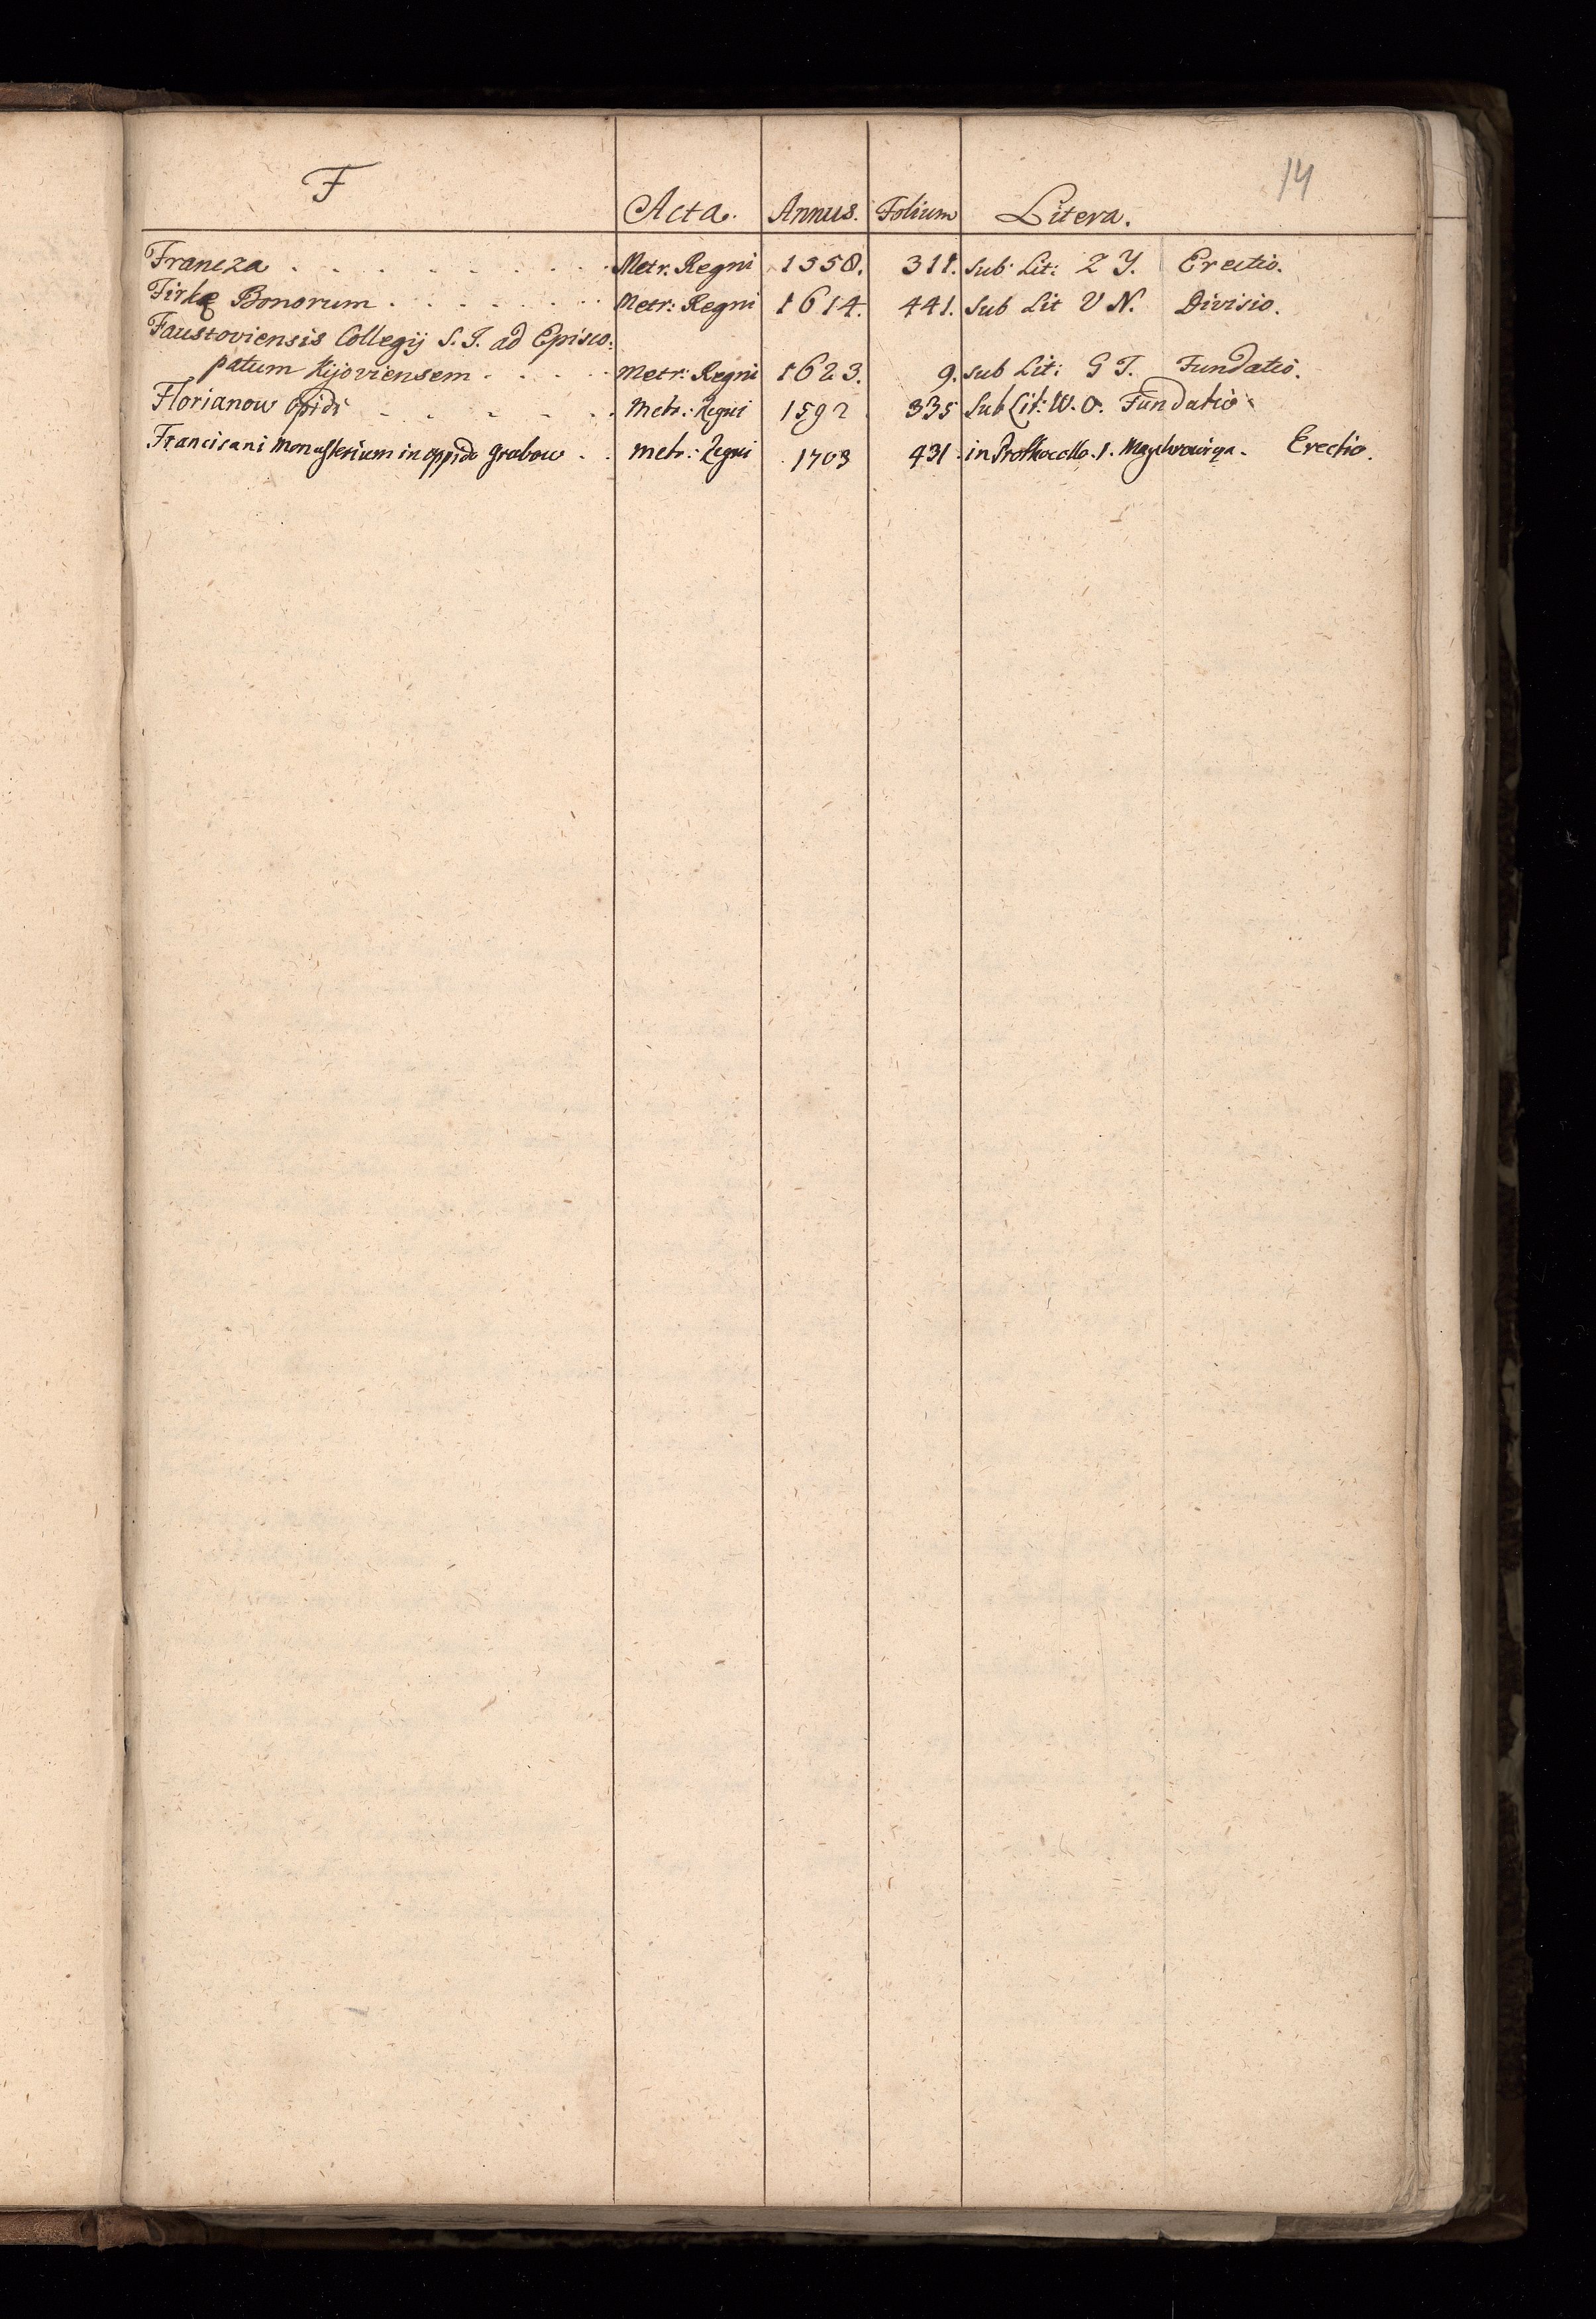 14
F Acta. Annus. Folium Litera.
Francza . . . . . . . . . Metr: Regni 1358. 311. sub Lit: Z Y. Erectio.
Firlę Bonorum . . . . . . . Metr: Regni 1614. 441. sub Lit V N. Divisio.
Faustoviensis Collegij S. J. ad Episco:
patum Kijoviensem . . . . . Metr: Regni 1623. 9. sub Lit: G T. Fundatio.
Florianow opidi - - - - - . Metr: Regni 1592 335 Sub Lit: W. O. Fundatio
Franciscani Monasterium in oppido Grabow . . Metr: Regni 1703 431. in Prothocollo. 1. Erectio.